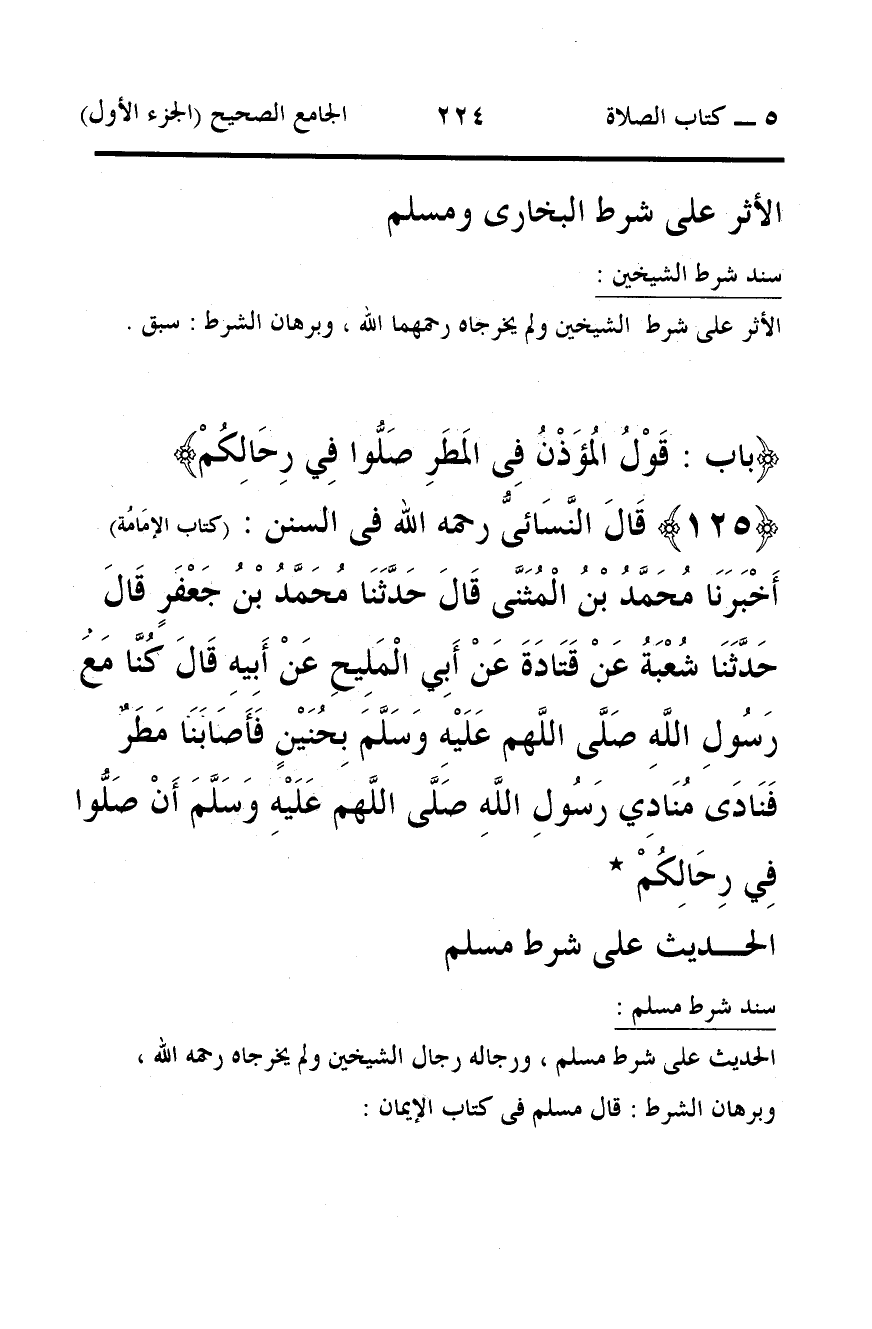 ٥ ــ كتاب الصلاة ٢٢٤ الجامع الصحيح (الجزء الأول)
الأثر على شرط البخارى ومسلم
سند شرط الشيخين :
الأثر على شرط الشيخين ولم يخرجاه رحمهما الله ، وبرهان الشرط : سبق .
﴿باب : قَوْلُ الْمُؤَذْنُ فِى الْمَطَرِ صَلُّوا فِي رِحَالِكُمْ﴾
﴿١٢٥﴾ قَالَ النَّسَائىُّ رحمه الله فى السنن : (كتاب الإمَامُة)
أَخْبَرَنَا مُحَمَّدُ بْنُ الْمُثَنَّى قَالَ حَدَّثَنَا مُحَمَّدُ بْنُ جَعْفَرٍ قَالَ
حَدَّثَنَا شُعْبَةُ عَنْ قَتَادَةَ عَنْ أَبِي الْمَلِيحِ عَنْ أَبِيهِ قَالَ كُنَّا مَعَ
رَسُولِ اللَّهِ صَلَّى اللَّهم عَلَيْهِ وَسَلَّمَ بِحُنَيْنٍ فَأَصَابَنَا مَطَرٌ
فَنَادَى مُنَادِي رَسُولِ اللَّهِ صَلَّى اللَّهم عَلَيْهِ وَسَلَّمَ أَنْ صَلُّوا
فِي رِحَالِكُمْ *
الحـــديث على شرط مسلم
سند شرط مسلم :
الحديث على شرط مسلم ، ورجاله رجال الشيخين ولم يخرجاه رحمه الله ،
وبرهان الشرط : قال مسلم فى كتاب الإيمان :